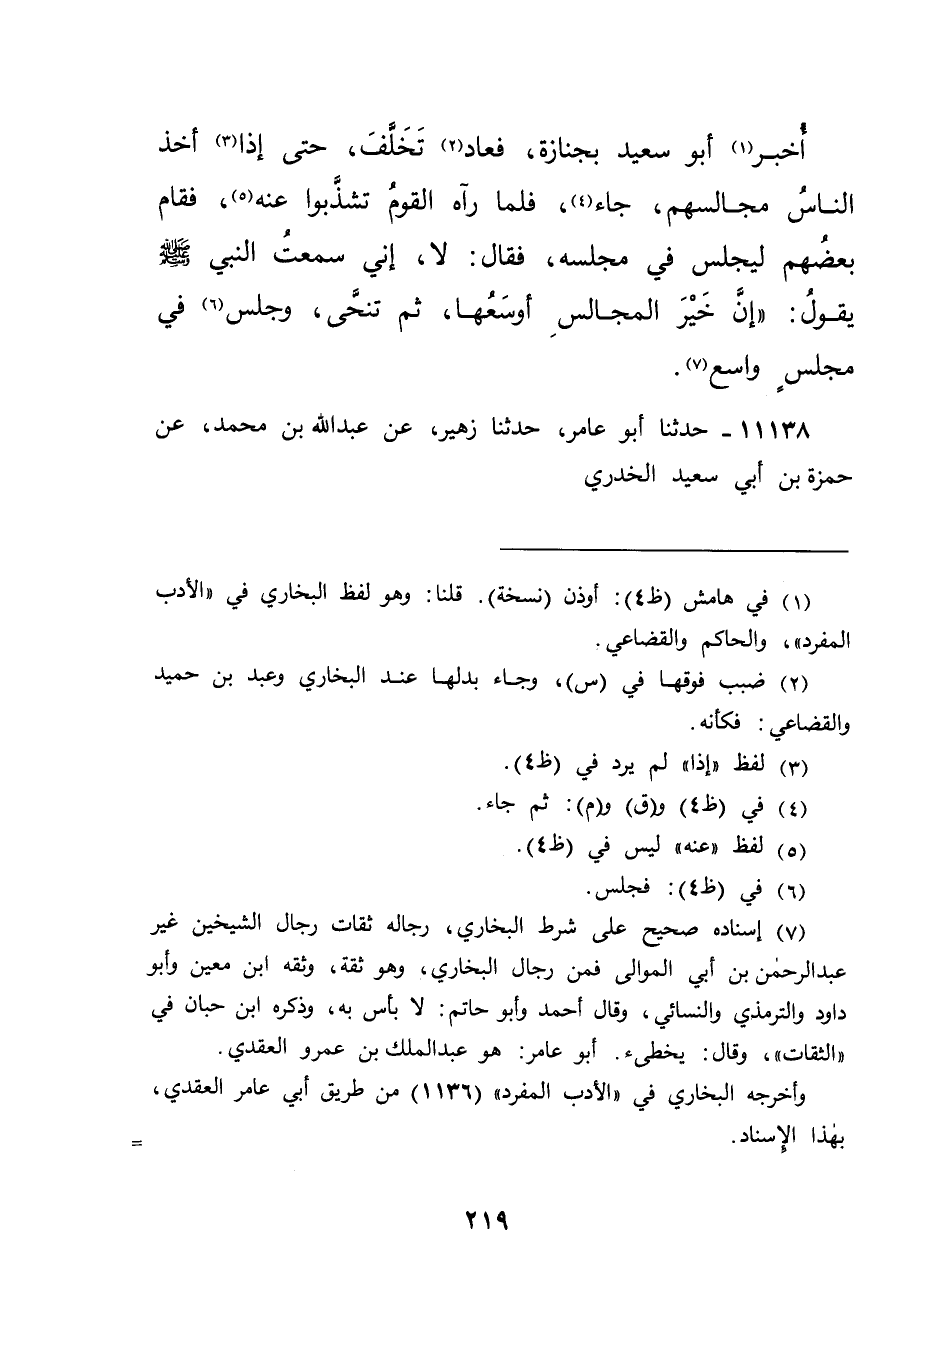 أُخبـر(١) أبو سعيد بجنازة، فعاد(٢) تَخَلَّفَ، حتى إذا(٣) أخذ
النـاسُ مجـالسهم، جاء(٤)، فلما رآه القومُ تشذَّبوا عنه(٥)، فقام
بعضُهم ليجلس في مجلسه، فقال: لا، إني سمعتُ النبي ﷺ
يقـولُ: «إنَّ خَيْرَ المجـالسِ أوسَعُهـا، ثم تنحَّى، وجلس(٦) في
مجلسٍ واسع(٧).
١١١٣٨ ـ حدثنا أبو عامر، حدثنا زهير، عن عبدالله بن محمد، عن
حمزة بن أبي سعيد الخدري
(١) في هامش (ظ٤): أوذن (نسخة). قلنا: وهو لفظ البخاري في «الأدب
المفرد»، والحاكم والقضاعي.
(٢) ضبب فوقهـا في (س)، وجـاء بدلهـا عنـد البخاري وعبد بن حميد
والقضاعي: فكأنه.
(٣) لفظ «إذا» لم يرد في (ظ٤).
(٤) في (ظ٤) و(ق) و(م): ثم جاء.
(٥) لفظ «عنه» ليس في (ظ٤).
(٦) في (ظ٤): فجلس.
(٧) إسناده صحيح على شرط البخاري، رجاله ثقات رجال الشيخين غير
عبدالرحمٰن بن أبي الموالى فمن رجال البخاري، وهو ثقة، وثقه ابن معين وأبو
داود والترمذي والنسائي، وقال أحمد وأبو حاتم: لا بأس به، وذكره ابن حبان في
«الثقات»، وقال: يخطىء. أبو عامر: هو عبدالملك بن عمرو العقدي.
وأخرجه البخاري في «الأدب المفرد» (١١٣٦) من طريق أبي عامر العقدي،
بهٰذا الإسناد. =
٢١٩